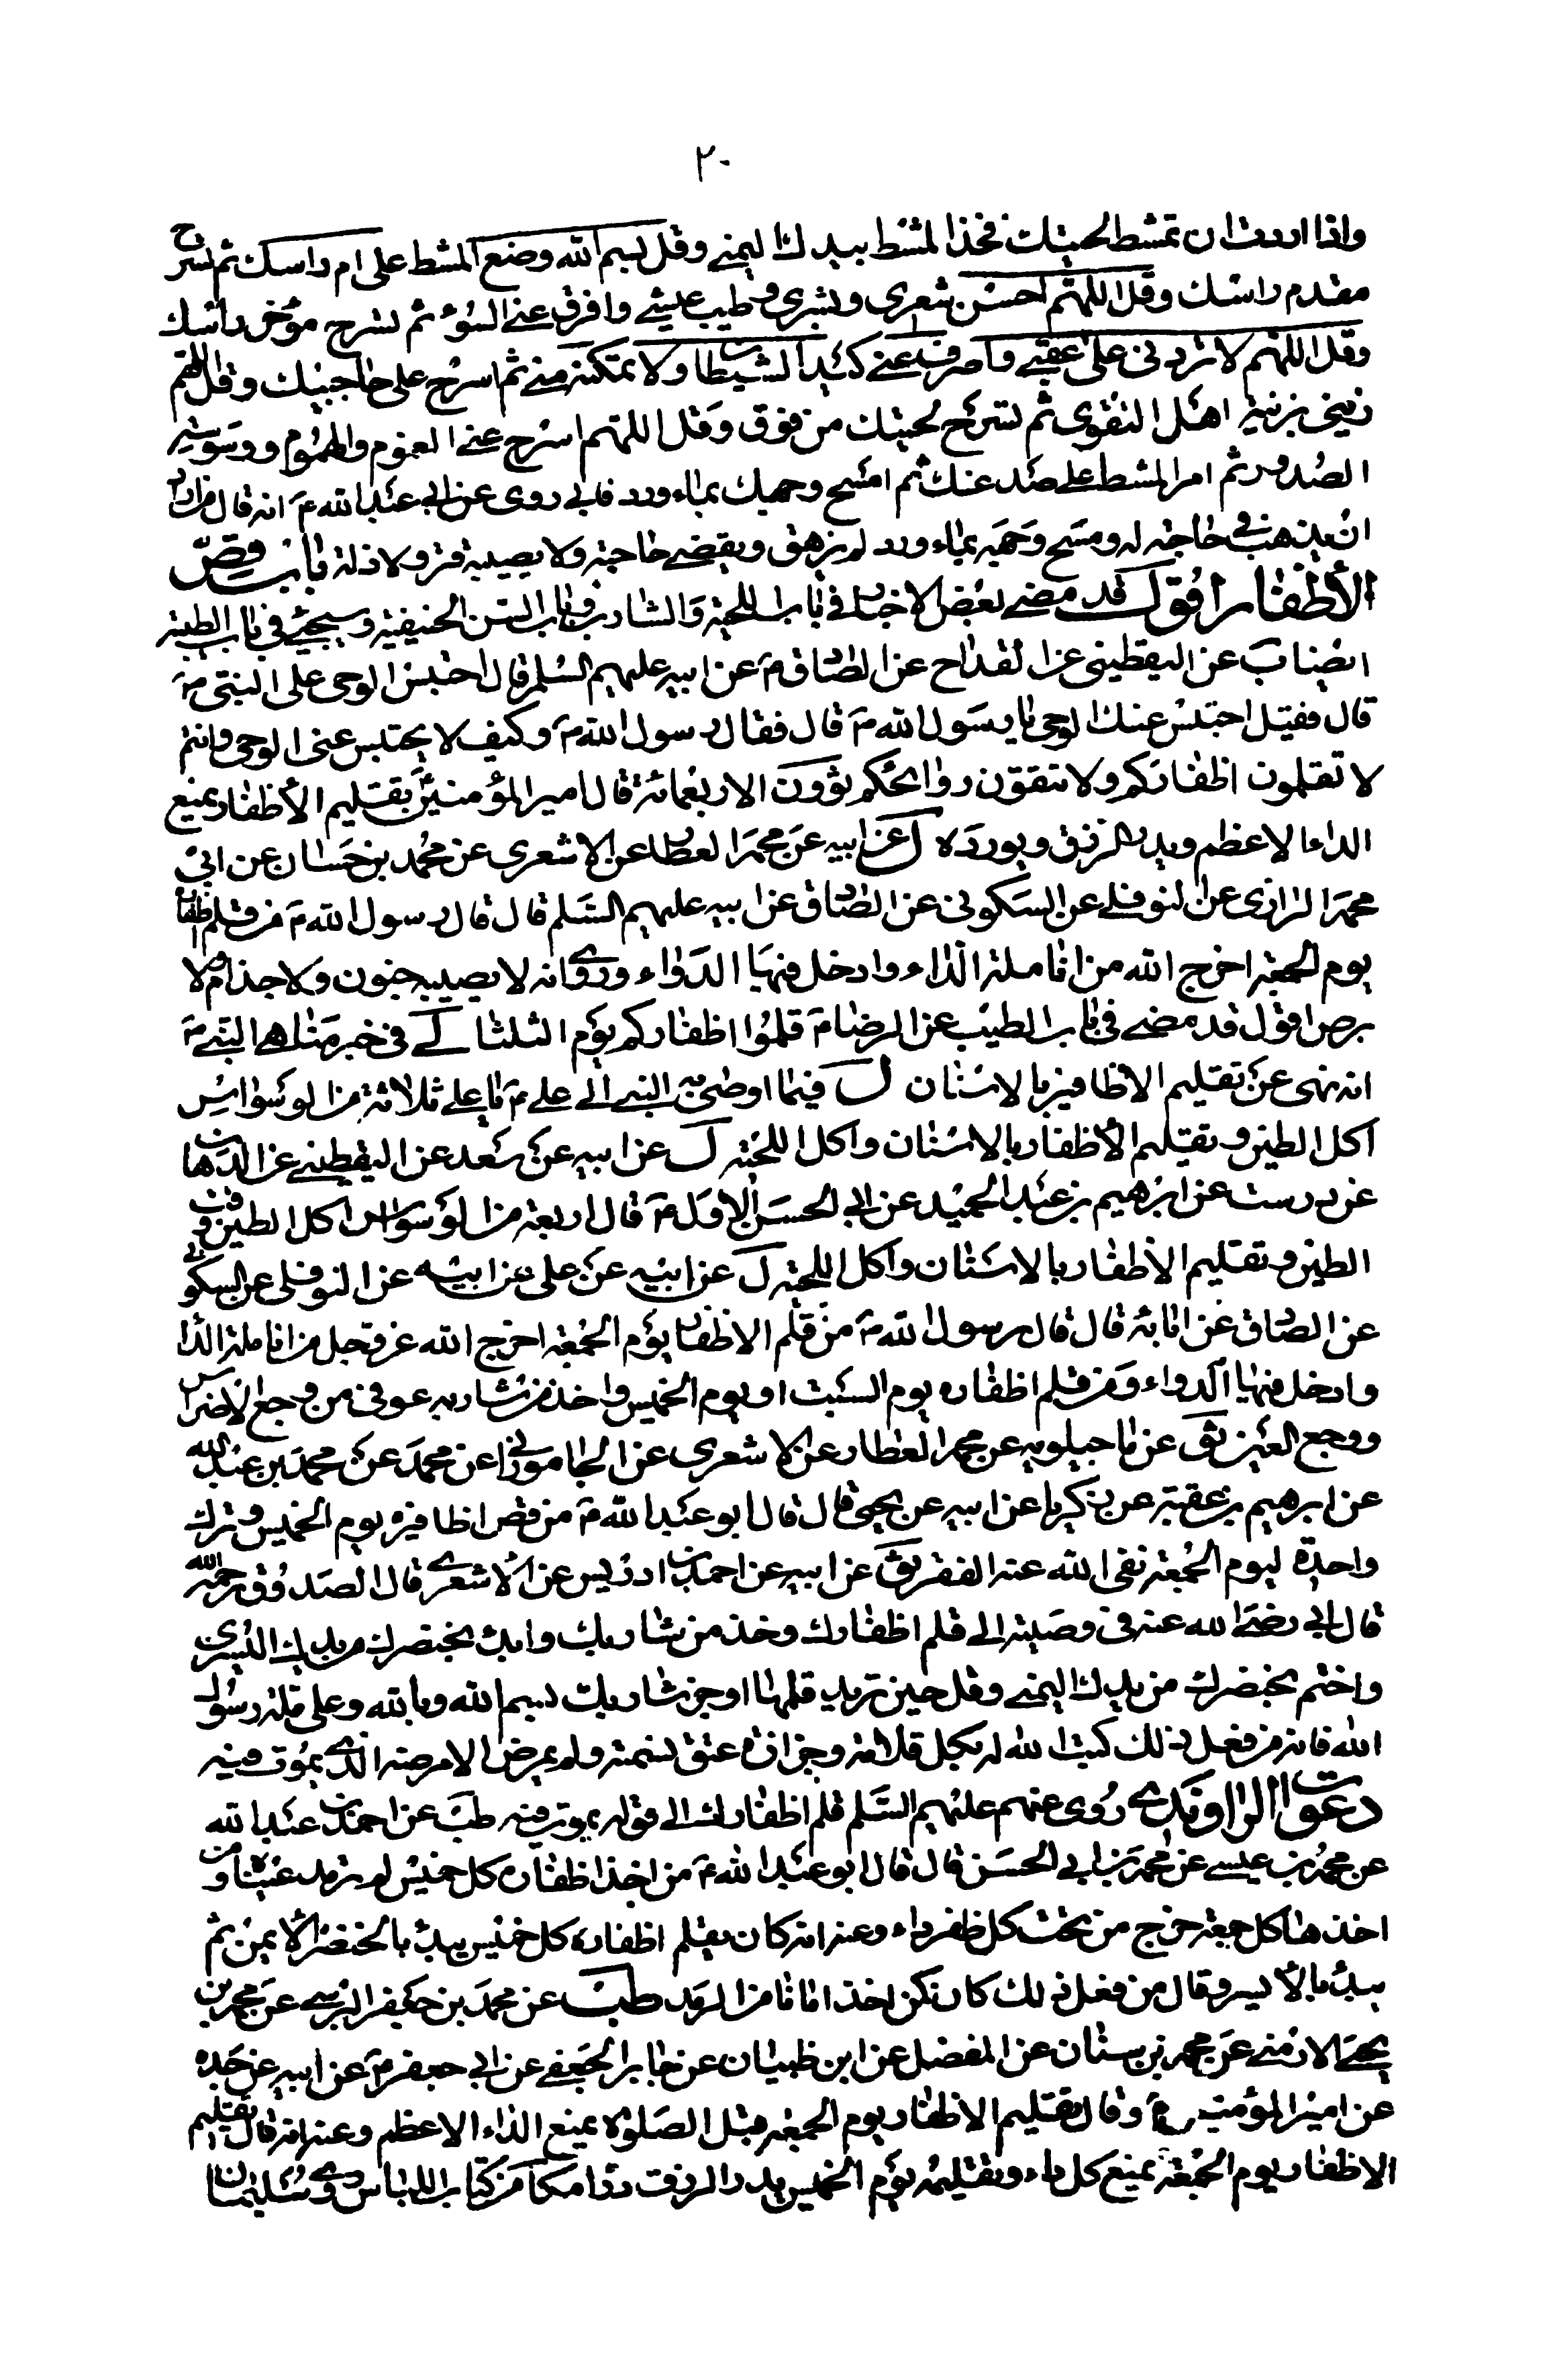 ٢٠
واذا اردت ان تمشط لحيتك فخذ المشط بيدك اليمنى وقل بسم الله وضع المشط على ام راسك ثم تسرح
مقدم راسك وقل اللهم احسن شعرى وبشرى وطيب عيشى وافرق عنى السوء ثم تسرح مؤخر راسك
وقل اللهم لا تردنى على عقبى واصرف عنى كيد الشيطان ولا تمكنه منى ثم اسرح على حاجبيك وقل اللهم
زينى بزينة اهل التقوى ثم تسرح لحيتك من فوق وقل اللهم اسرح عنى الغموم والهموم ووسوسة
الصدور ثم امر المشط على صدغك ثم امسح وجهك بماء ورد فانى روى عن ابى عبد الله ع انه قال من اراد
ان يذهب فى حاجة له ومسح وجهه بماء ورد لم يرهق ويقضى حاجته ولا يصيبه قتر ولا ذلة باب قص
الأظفار اقول قد مضى بعض الاخبار فى باب اللحية والشارب وباب السنن الحنيفية وسيجئ فى باب الطيب
ايضا ب عن اليقطينى عن القداح عن الصادق ع عن ابيه عليهم السلم قال احتبس الوحى على النبى ص
قال فقيل احتبس عنك الوحى يا رسول الله ص قال فقال رسول الله ص وكيف لا يحتبس عنى الوحى وانتم
لا تقلمون اظفاركم ولا تنقون رواجبكم ل الاربعمائة قال امير المؤمنين ع تقليم الأظفار يمنع
الداء الاعظم ويدر الرزق ويورده ل عن ابيه عن محمد العطار عن الاشعرى عن محمد بن حسان عن ابى
محمد الرازى عن النوفلى عن السكونى عن الصادق عن ابيه عليهم السلم قال قال رسول الله ص من قلم اظفاره
يوم الجمعة اخرج الله من انامله الداء وادخل فيها الدواء وروى انه لا يصيبه جنون ولا جذام ولا
برص اقول قد مضى فى باب الطيب عن الرضا ع قلموا اظفاركم يوم الثلثا لى فى خبر مناهى النبى ص
انه نهى عن تقليم الاظافير بالاسنان ل فيما اوصى به النبى الى على ع يا على ثلاثة من الوسواس
اكل الطين وتقليم الأظفار بالاسنان واكل اللحية ل عن ابيه عن سعد عن اليقطينى عن الدهقان
عن درست عن ابرهيم بن عبد الحميد عن ابى الحسن الاول ع قال اربعة من الوسواس اكل الطين وفت
الطين وتقليم الأظفار بالاسنان واكل اللحية ل عن ابيه عن على عن ابيه عن النوفلى عن السكونى
عن الصادق عن ابائه قال قال رسول الله ص من قلم الاظفار يوم الجمعة اخرج الله عز وجل من انامله الداء
وادخل فيها الدواء ومن قلم اظفاره يوم السبت او يوم الخميس واخذ من شاربه عوفى من وجع الاضراس
ووجع العين ثو عن ماجيلويه عن محمد العطار عن الاشعرى عن الجامورانى عن محمد عن محمد بن عبد الله
عن ابرهيم بن عقبة عن زكريا عن ابيه عن يحيى قال قال ابو عبد الله ع من قص اظافيره يوم الخميس وترك
واحدة ليوم الجمعة نفى الله عنه الفقر ثو عن ابيه عن احمد بن ادريس عن الاشعرى قال الصدوق رحمه الله
قال ابى رضى الله عنه فى وصيته الى قلم اظفارك وخذ من شاربك وابدء بخنصرك من يدك اليسرى
واختم بخنصرك من يدك اليمنى وقل حين تريد قلمها او جز شاربك بسم الله وبالله وعلى ملة رسول
الله فانه من فعل ذلك كتب الله له بكل قلامة وجزازة عتق نسمة ولم يمرض الا مرضه الذى يموت فيه
دعوات الراوندى روى عنهم عليهم السلم قلم اظفارك الى قوله يموت فيه طب عن احمد بن عبد الله
عن محمد بن عيسى عن محمد بن ابى الحسن قال قال ابو عبد الله ع من اخذ اظفاره كل خميس لم ترمد عيناه ومن
اخذها كل جمعة خرج من تحت كل ظفر داء وعنه انه كان يقلم اظفاره كل خميس يبدء بالخنصر الأيمن ثم
يبدء بالأيسر وقال من فعل ذلك كان كمن اخذ امانا من الرمد طب عن محمد بن جعفر البرسى عن محمد بن
يحيى الارمنى عن محمد بن سنان عن المفضل عن ابن ظبيان عن جابر الجعفى عن ابى جعفر ع عن ابيه عن جده
عن امير المؤمنين ع وقال تقليم الاظفار يوم الجمعة قبل الصلوة يمنع الداء الاعظم وعنه انه قال تقليم
الاظفار يوم الجمعة يمنع كل داء وتقليمه يوم الخميس يدر الرزق درا مكا من كتاب اللباس روى سليمان